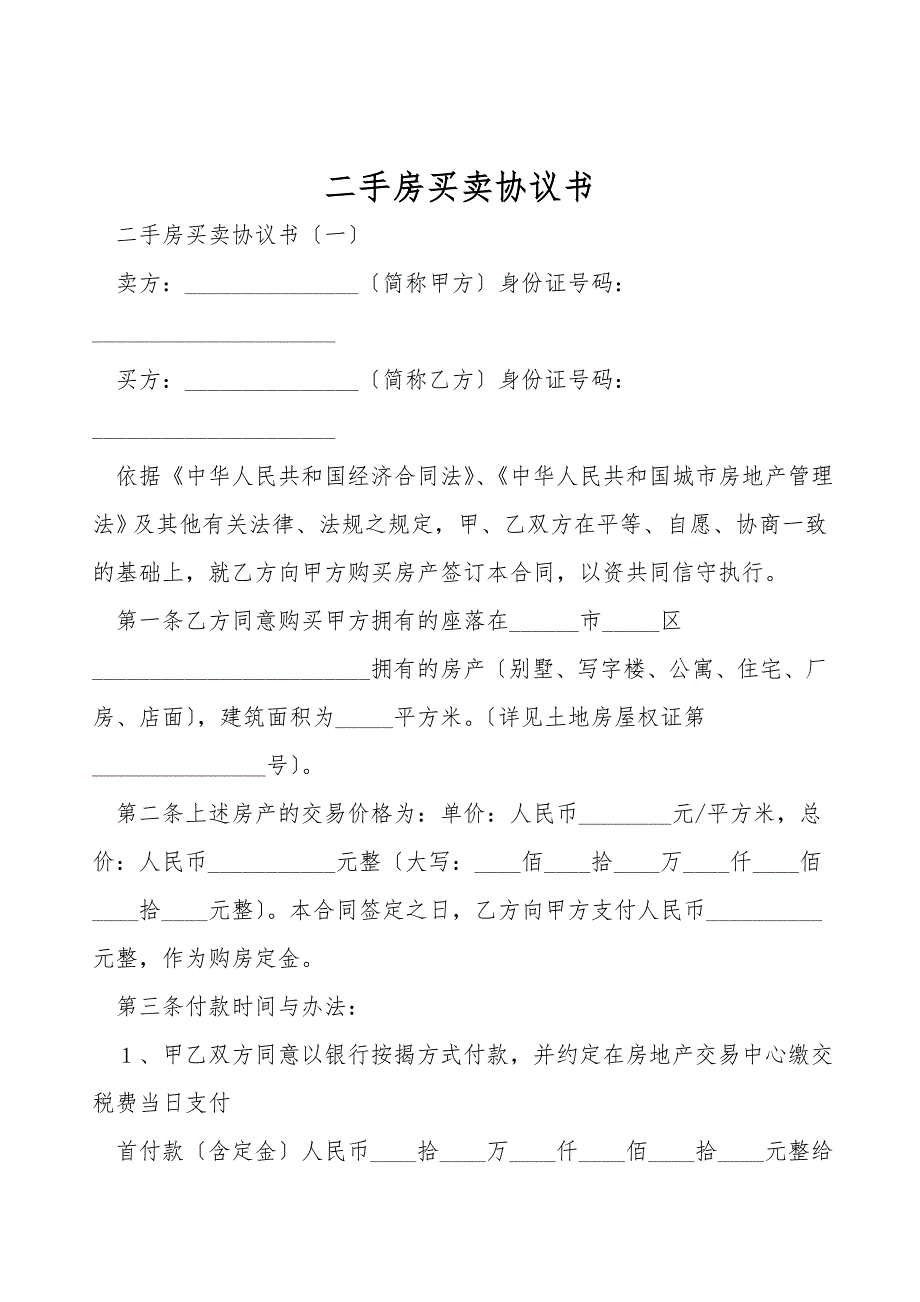 二手房买卖协议书
二手房买卖协议书〔一〕
卖方：_______________〔简称甲方〕身份证号码：
_____________________
买方：_______________〔简称乙方〕身份证号码：
_____________________
依据《中华人民共和国经济合同法》、《中华人民共和国城市房地产管理
法》及其他有关法律、法规之规定，甲、乙双方在平等、自愿、协商一致
的基础上，就乙方向甲方购买房产签订本合同，以资共同信守执行。
第一条乙方同意购买甲方拥有的座落在______市_____区
________________________拥有的房产〔别墅、写字楼、公寓、住宅、厂
房、店面〕，建筑面积为_____平方米。〔详见土地房屋权证第
_______________号〕。
第二条上述房产的交易价格为：单价：人民币________元/平方米，总
价：人民币___________元整〔大写：____佰____拾____万____仟____佰
____拾____元整〕。本合同签定之日，乙方向甲方支付人民币__________
元整，作为购房定金。
第三条付款时间与办法：
１、甲乙双方同意以银行按揭方式付款，并约定在房地产交易中心缴交
税费当日支付
首付款〔含定金〕人民币____拾____万____仟____佰____拾____元整给